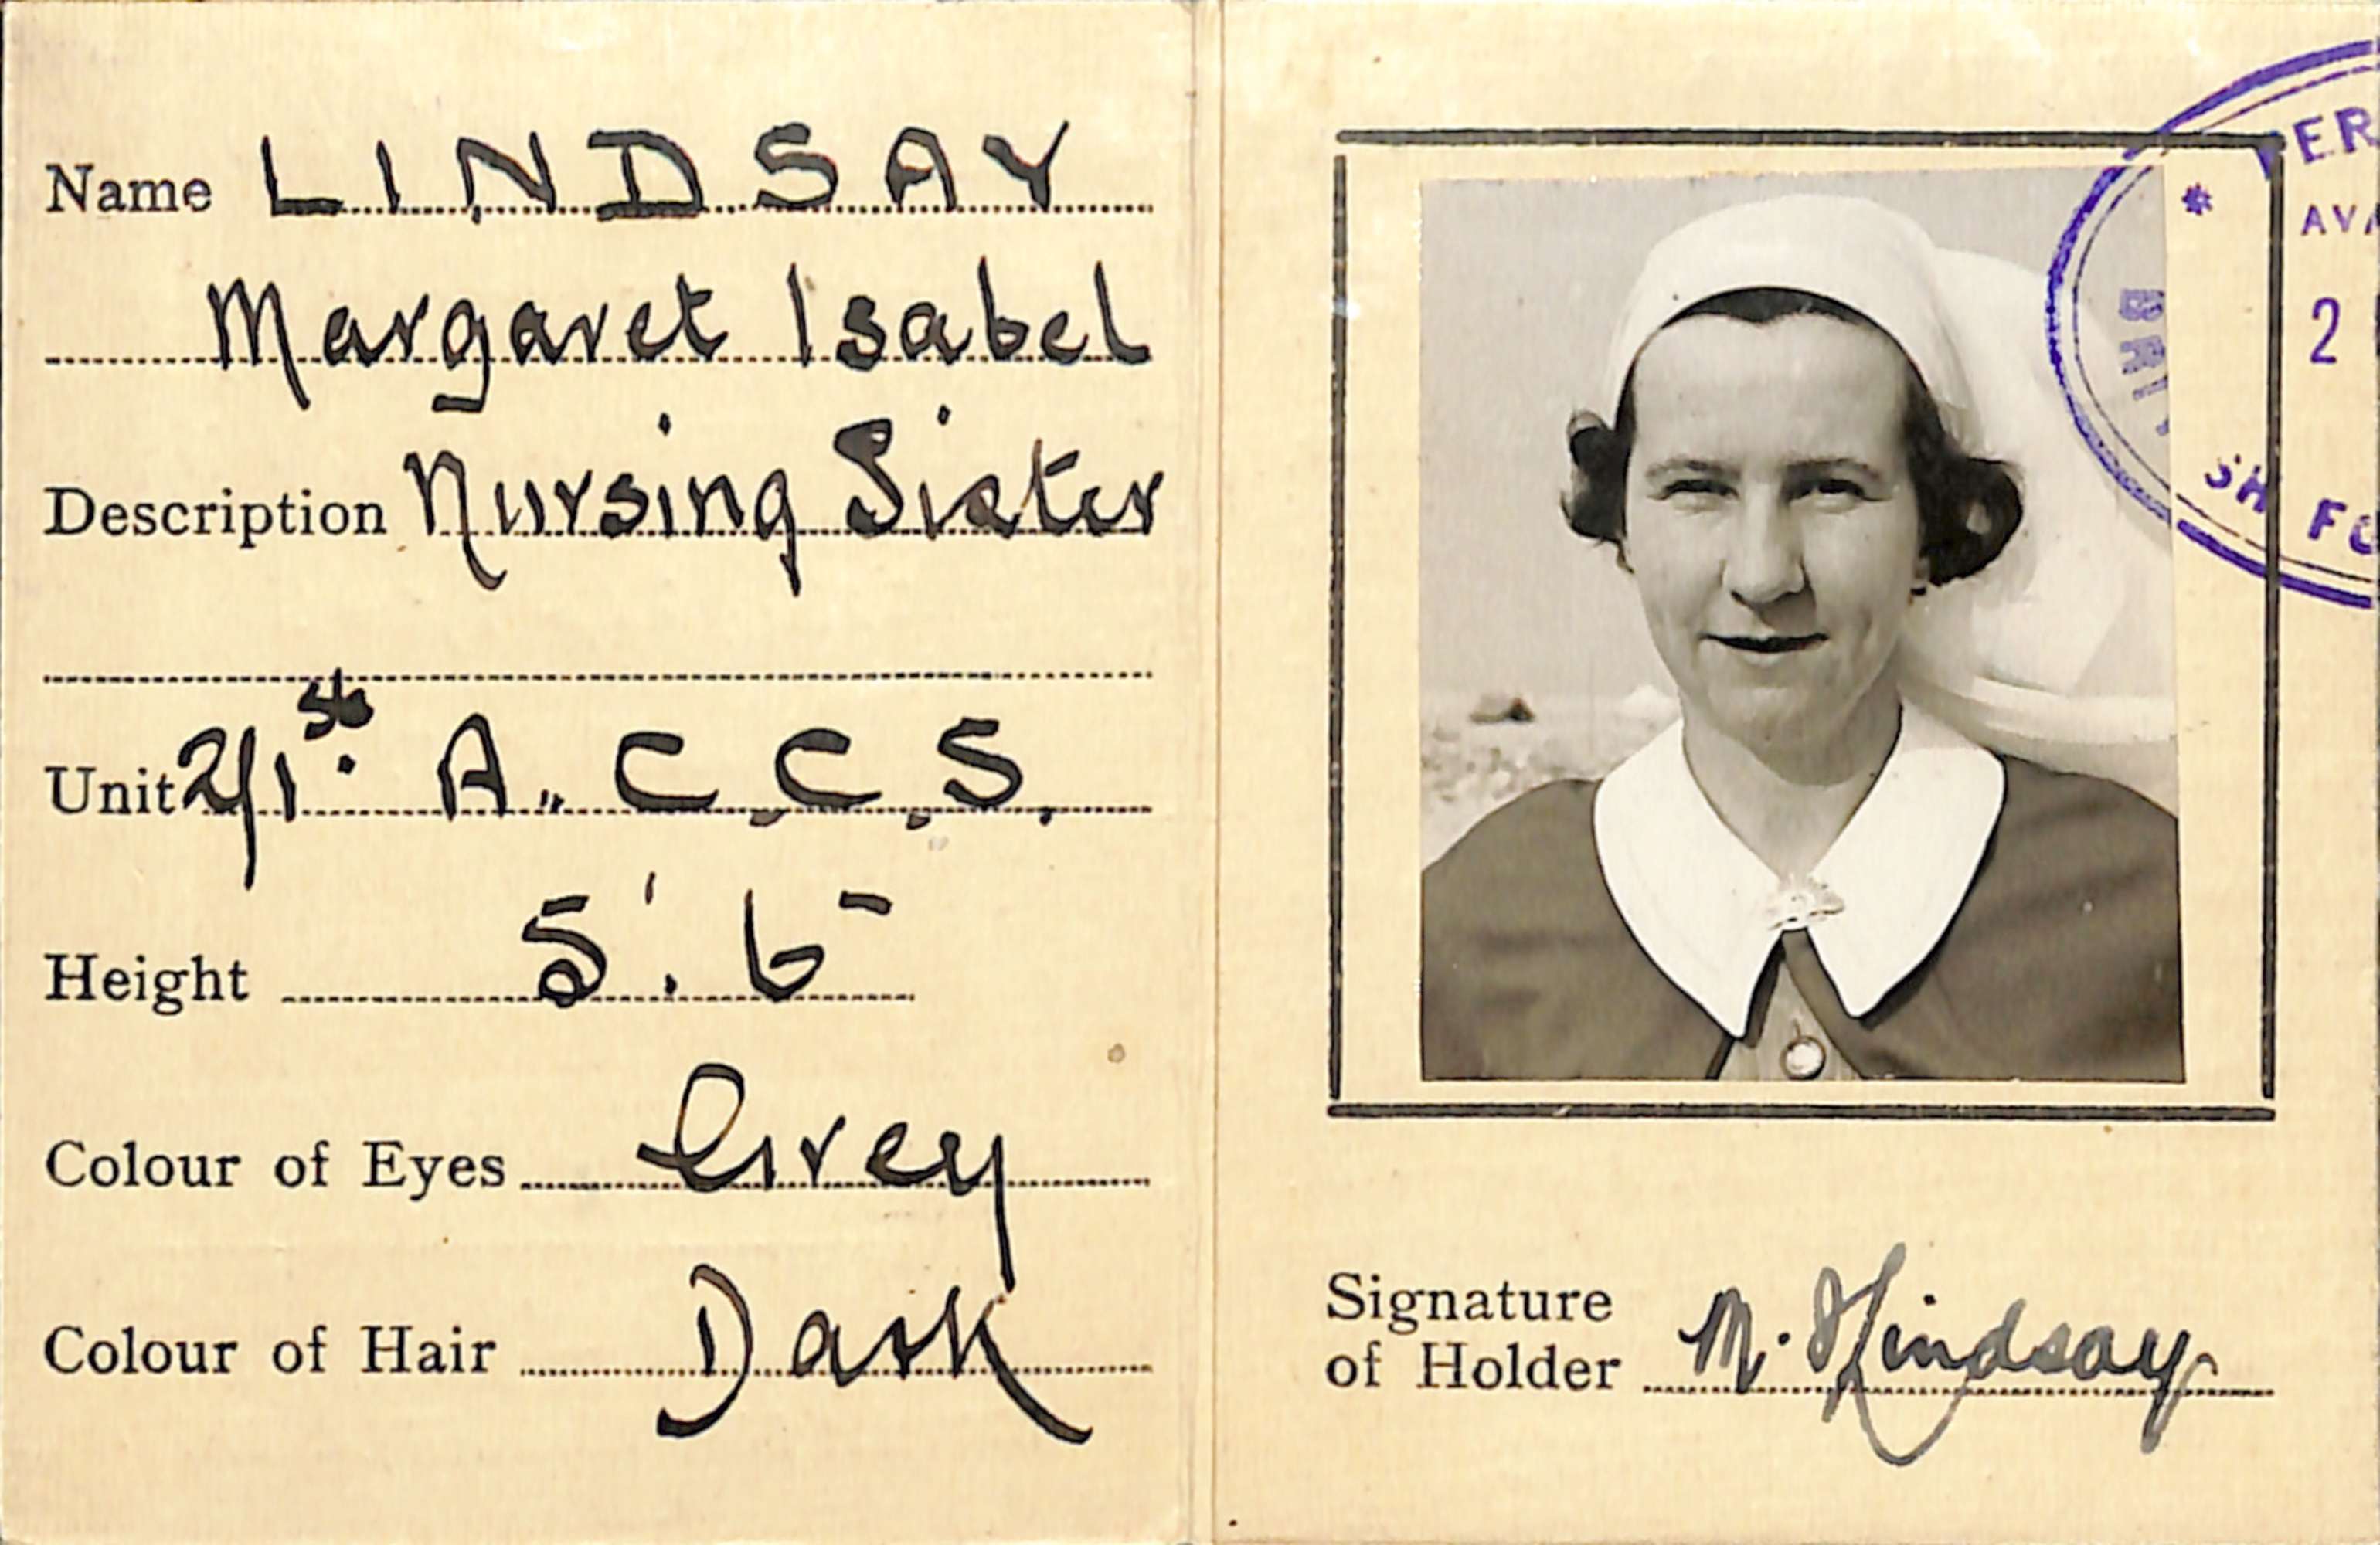 Name LINDSAY
Margaret Isabel
Description Nursing Sister
Unit 2/1st. A.. C. C. S.
Height 5'. 6"
Colour of Eyes Grey
Colour of Hair Dark
* ER
AVA
2
BRIT
SH FO
Signature
of Holder M. I Lindsay